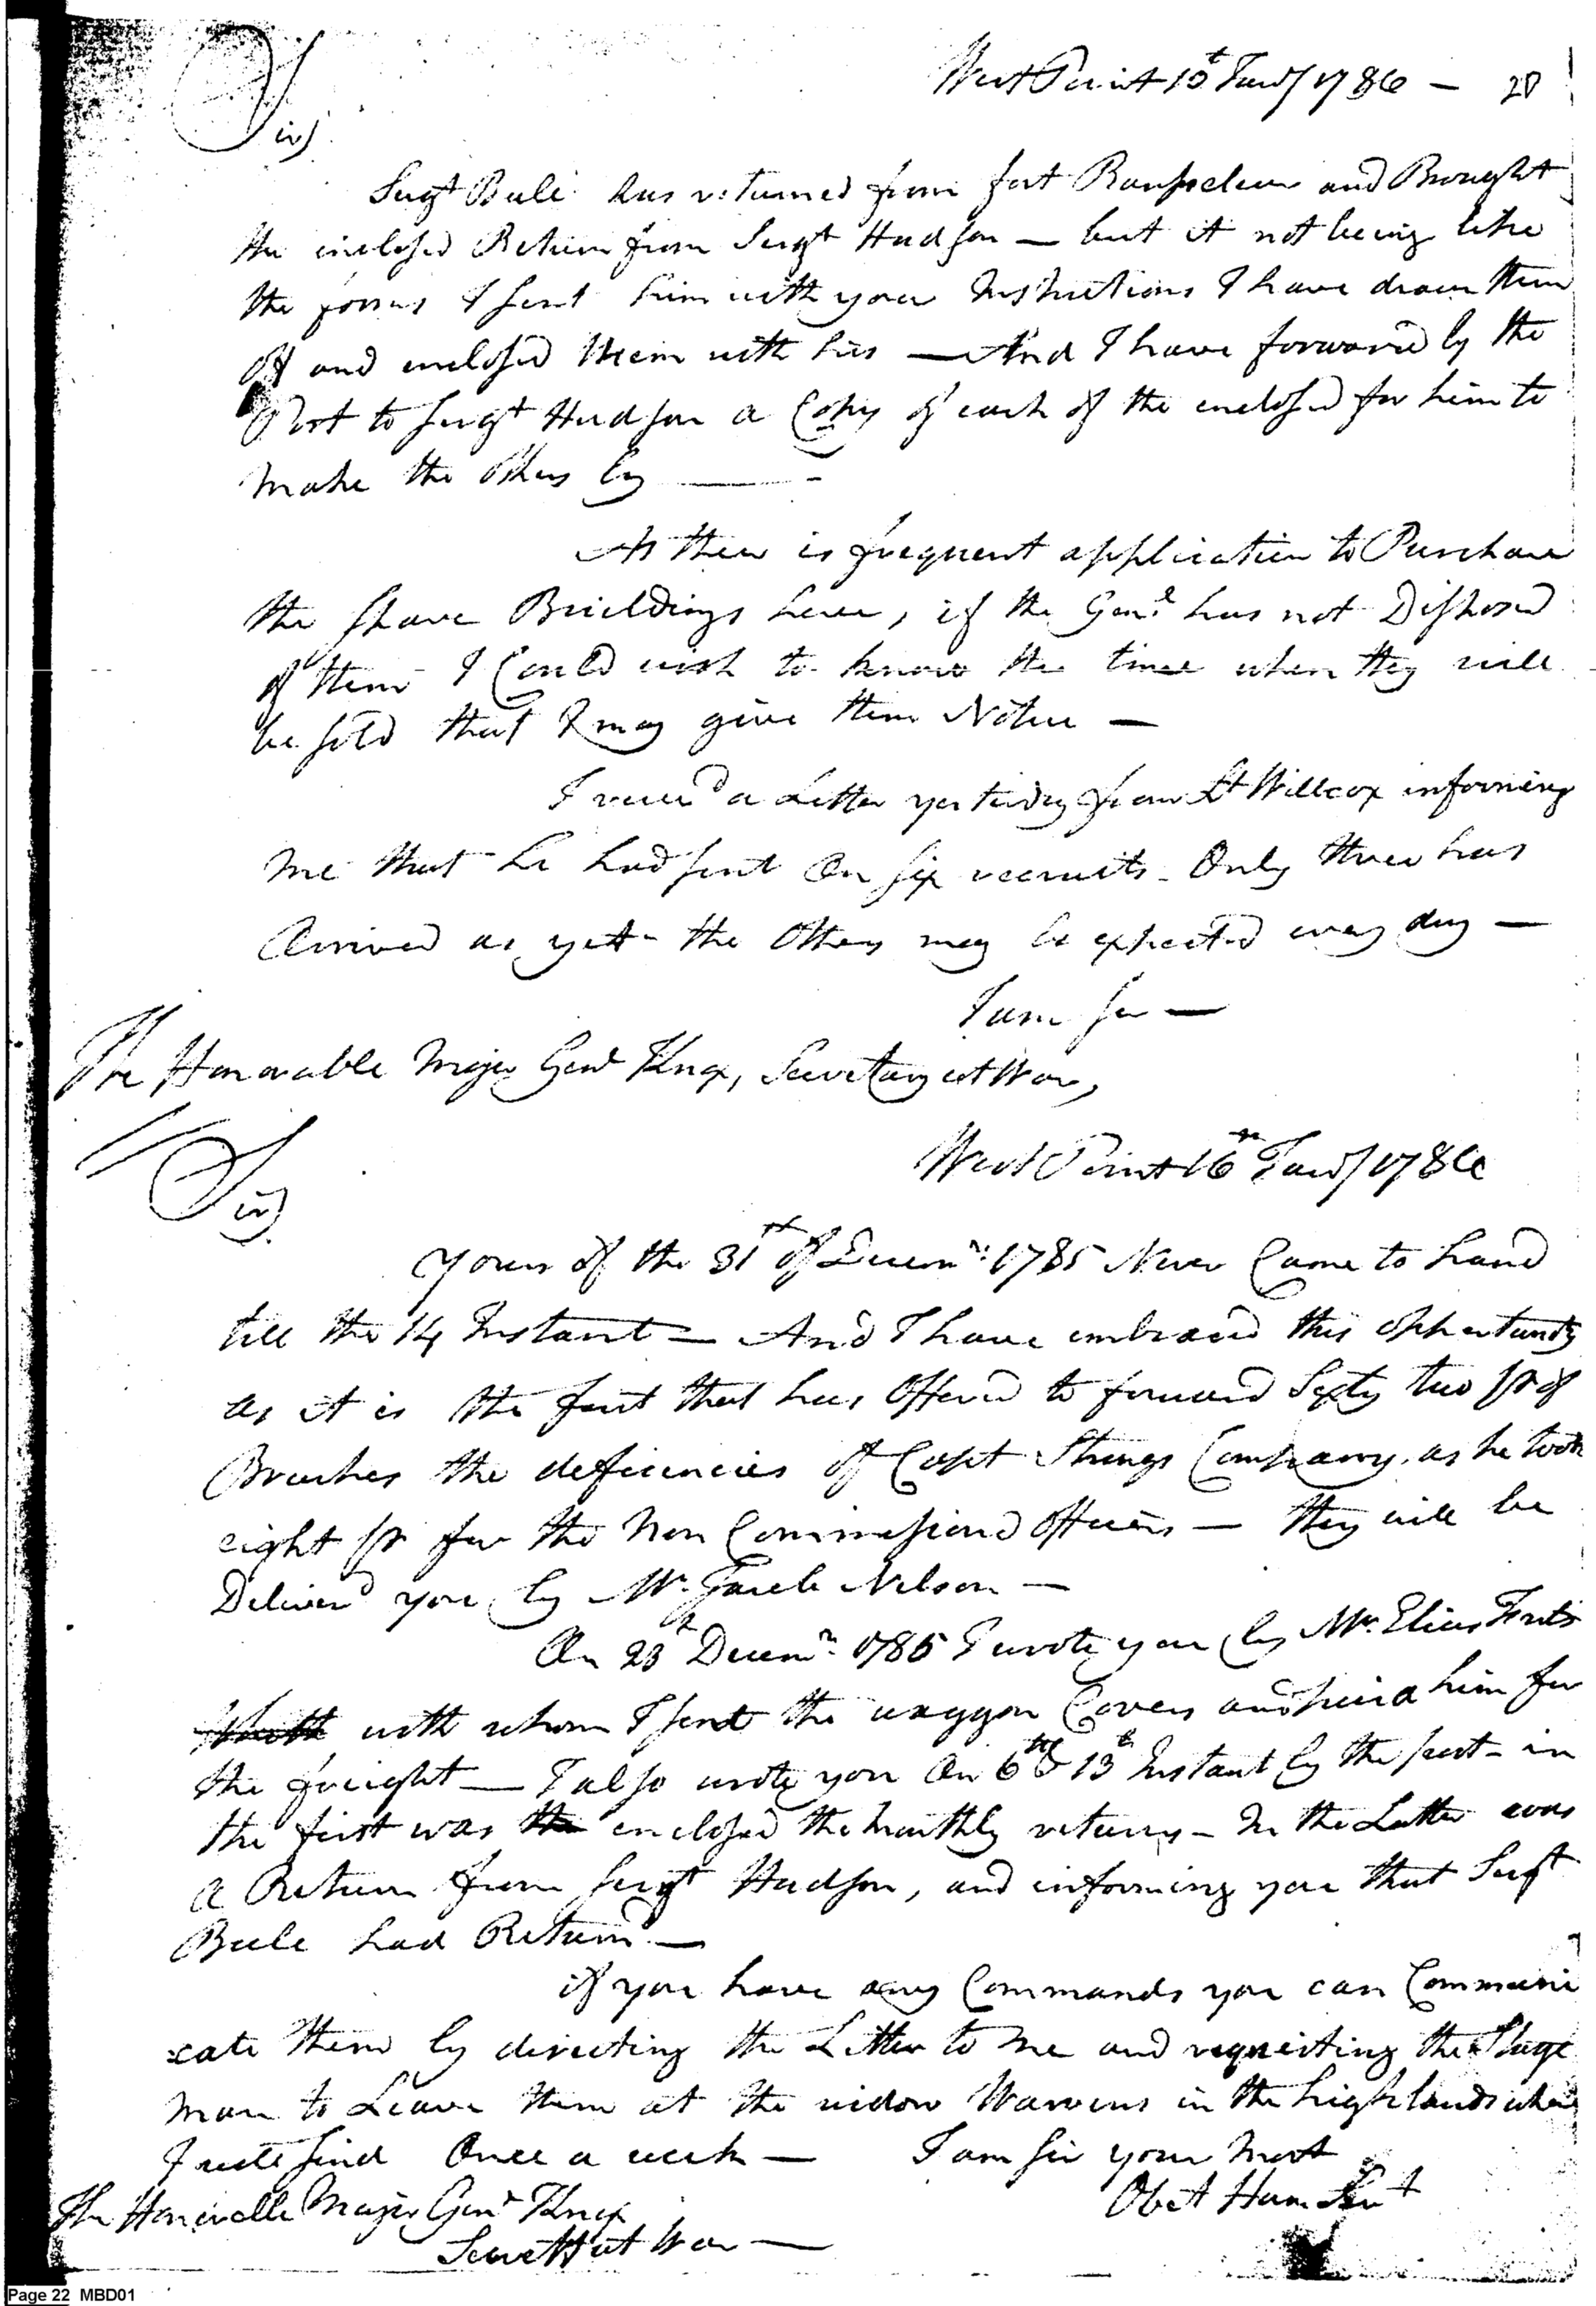 West Point 10t Jany 1786 — 20
Sir,
Sergt Bule has returned from fort Ranpseleur and Brought
the inclosed Return from Sergt Hudson — but it not being like
the forms I sent him with your Instructions I have drawn them
off and enclosed them with his — And I have forward by the
Post to Sergt Hudson a Copy of each of the enclosed for him to
make the others by —
As there is frequent application to Purchase
the spare Buildings here, if the Genl has not Disposed
of them I Could wish to know the time when they will
be sold that I may give them Notice —
I receivd a Letter yesterday from Lt Willcox informing
me that he had sent On six recruits - Only three has
Arrived as yet - the Others may be expected every day —
I am Sir —
The Honorable Major Genl Knox, Secretary at War,
West Point 16th Jany 1786
Sir,
Yours of the 31st of Decemr 1785 Never Came to hand
till the 14 Instant — And I have embraced this Opportunity
as it is the first that has Offered to forward Sixty two pr of
Breeches the deficiencies of Capt Strongs Company, as he took
eight pr for the Non Commissiond Officers — they will be
Deliverd you by Mr Jacob Nelson —
On 23d Decemr 1785 I wrote you by Mr Elias
with whom I sent the waggon Covers and paid him for
the freight — I also wrote you On 6th & 13t Instant by the post - in
the first was the enclosed the monthly returns - In the Latter was
a Return from Sergt Hudson, and informing you that Sergt
Bule had Returnd —
if you have any Commands you can Communi
cate them by directing the Letter to me and requesting the Stage
man to Leave them at the widow Warrens in the highlands where
I will send Once a week — I am Sir your Most
Obet Hum Sert
The Honorable Major Genl Knox
Secrety at War —
Page 22 MBD01